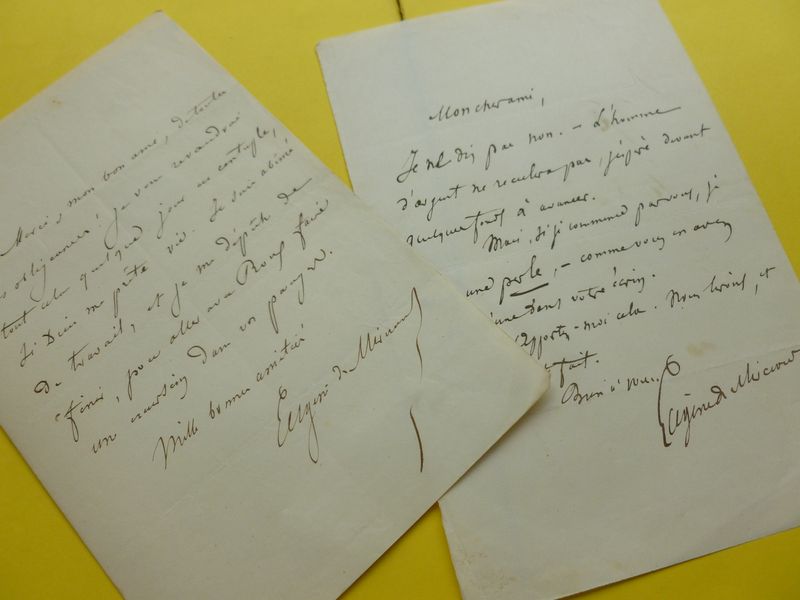 Merci, mon bon ami, de toutes
vos obligeances! Je vous revaudrai
tout cela quelque jour au centuple,
si Dieu me prête vie. Je suis abîmé
de travail, et je me dépêche de
finir, pour aller avec faire
une excursion dans vos parages.
Mille bonnes amitiés
Eugène de Mirecourt
Mon cher ami,
Je ne dis pas non. – L'homme
d'argent ne reculera pas, j'espère devant
quelques fonds à avancer.
Mais, si je commence par vous, je
une perle, – comme vous en avez
une dans votre écrin.
Apportez-moi cela. Nous lirons, et
fait.
Bien à vous.
Eugène de Mirecourt